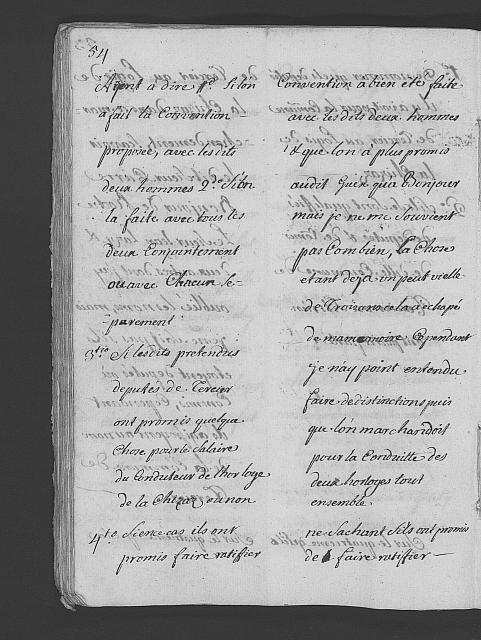 54
Ayent a dire 1º. Si lon
a fait la Convention
proposée, avec les dits
deux hommes 2.º Si lon
la faite avec tous les
deux Conjointement
ou avec Chacun se-
parement
3.tio Si les dits pretendus
deputés de Tercier
ont promis quelque
Chose pour le Salaire
du Conduteur de l'horloge
de la ou non
4.to Si en ce cas ils ont
promis faire ratiffier
Convention a bien eté faite
avec les dits deux hommes
& que lon a plus promis
audit qu'a Bonjour
mais je ne me Souvient
pas Combien, la Chose
etant deja un peut vielle
de Trois ans cela a échapé
de ma memoire, Cependant
je n'ay point entendu
faire de distinction puis
que l'on marchandoit
pour la Conduitte des
deux horloges tout
ensemble
ne Sachant S'ils ont promis
de faire ratiffier